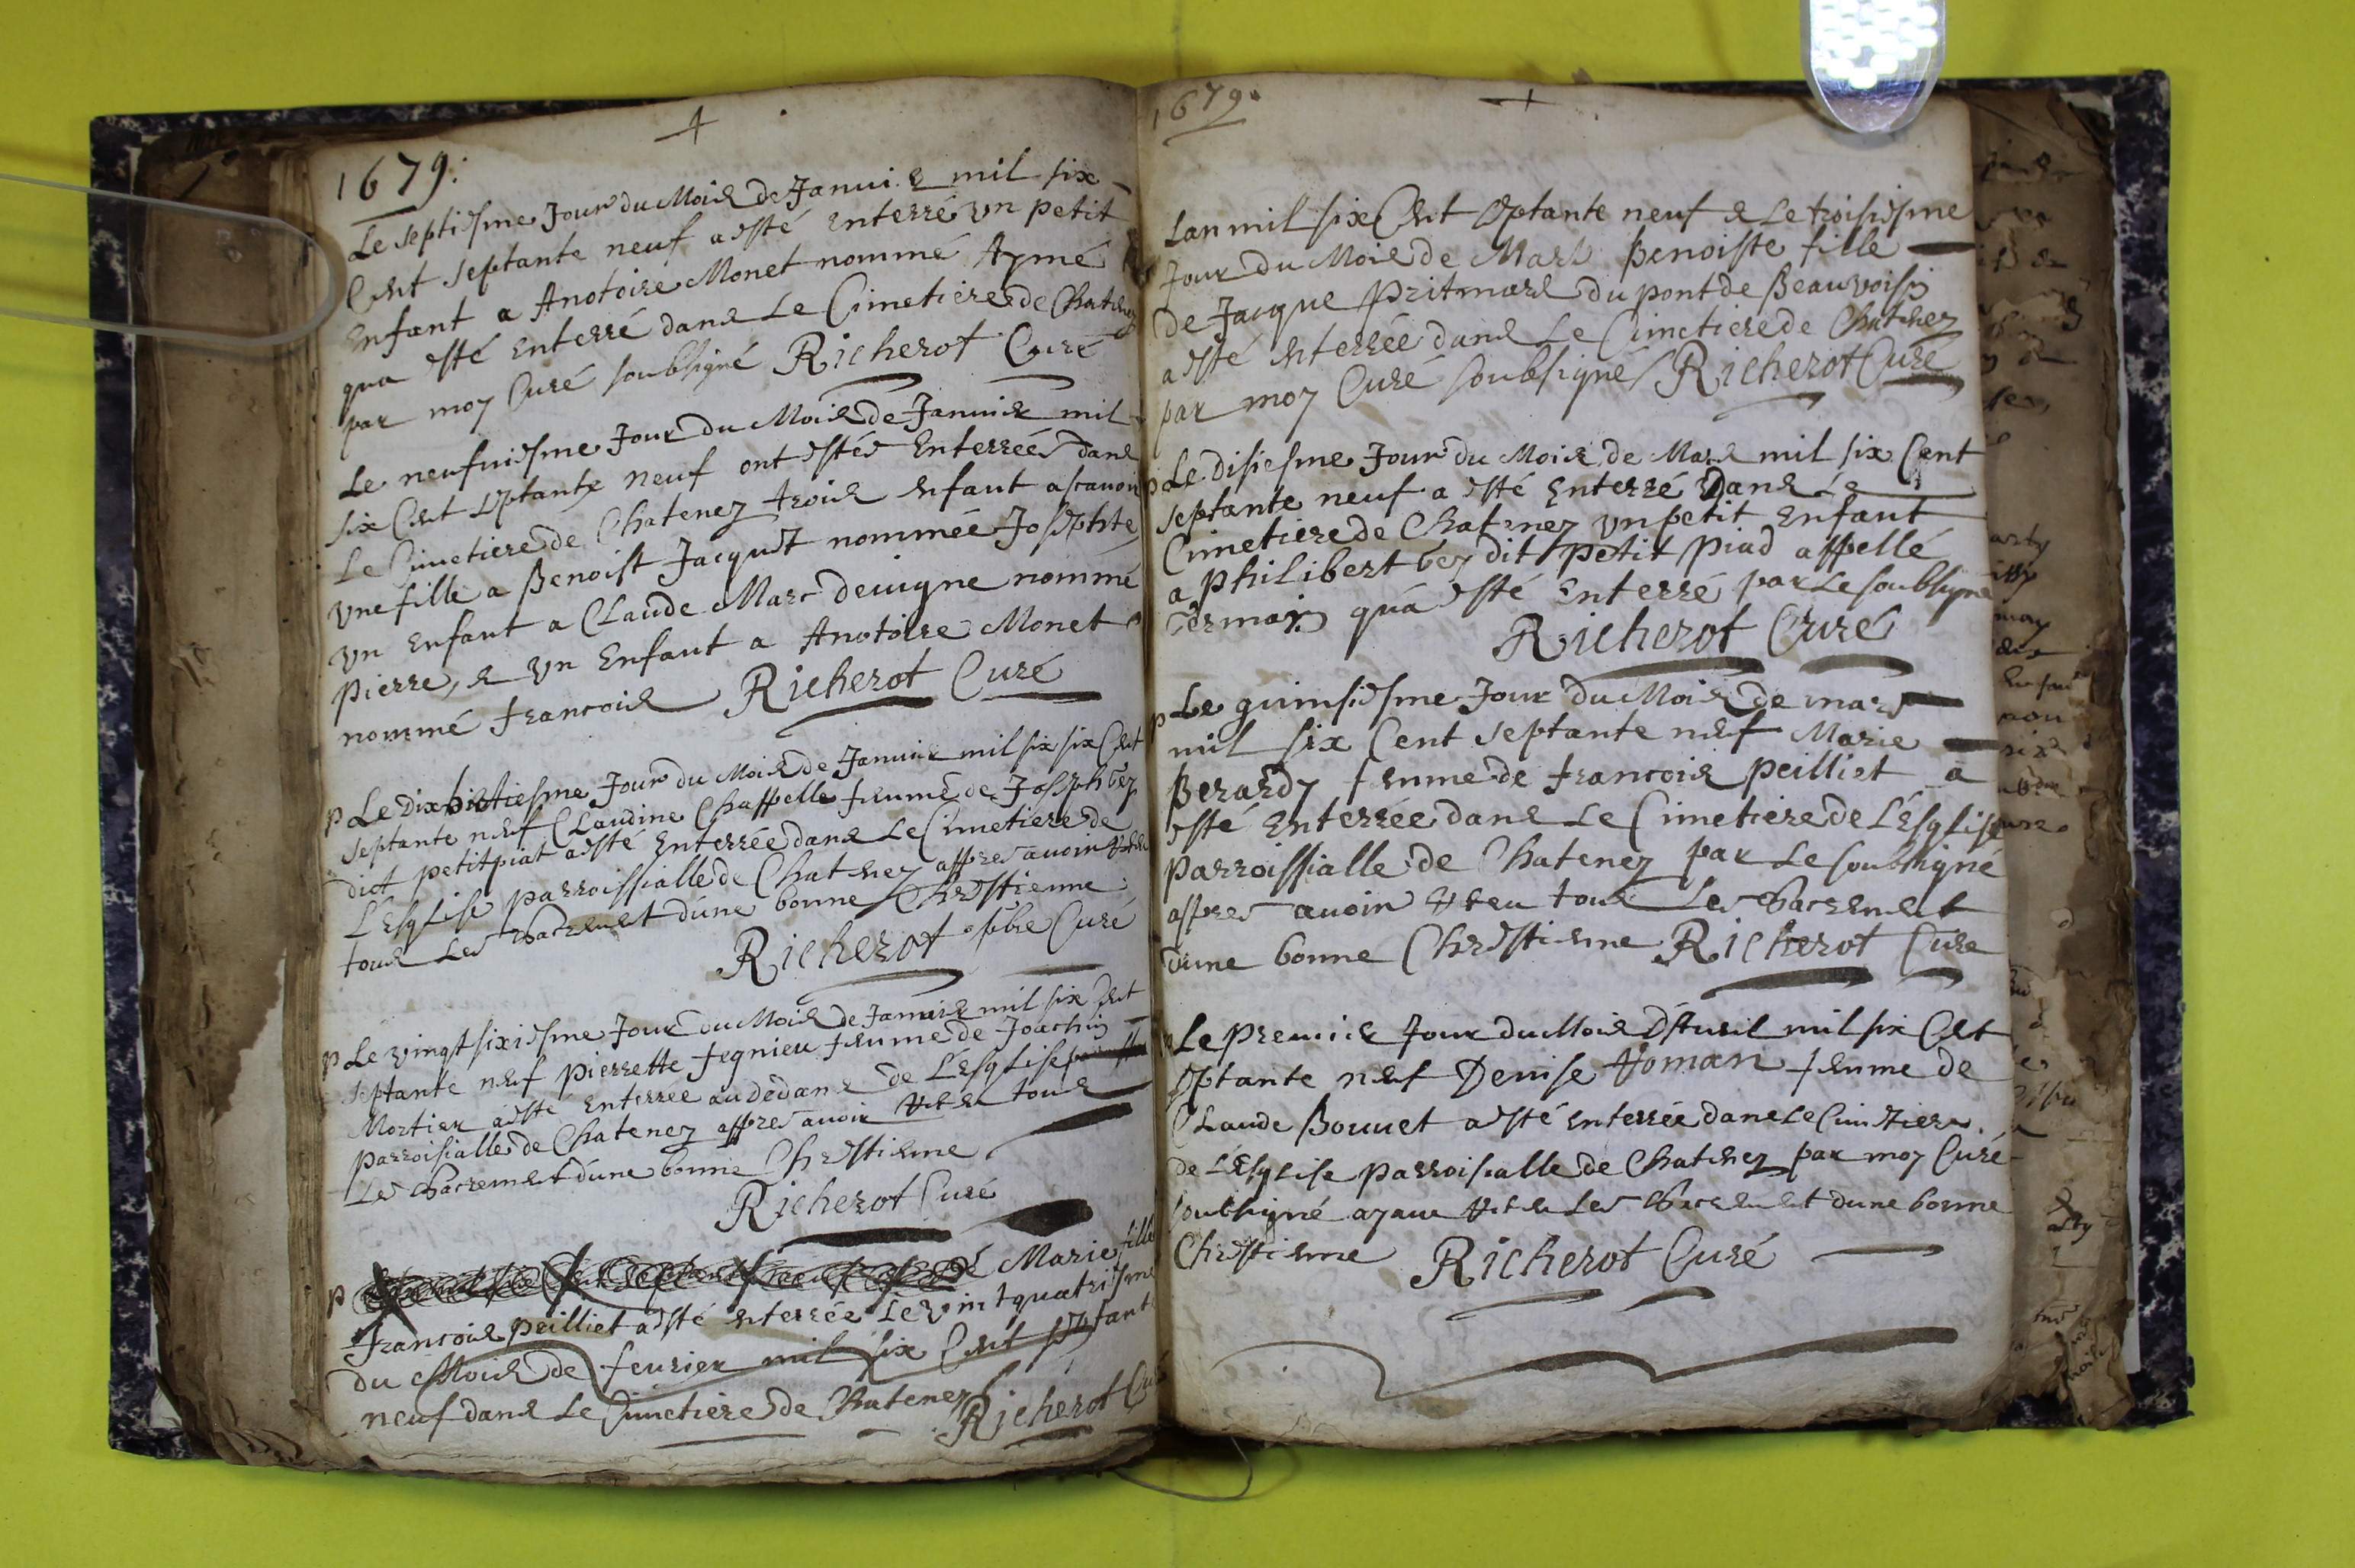 1679.
Le septiesme Jour du Mois de Januier mil six
Cent septante neuf a esté Enterré un petit
Enfant a Anotoire Monet nommé Aymé
qua esté Enterré dans Le Cimetiere de Chatenez
par moy Curé soubsigné Richerot Curé
Le neufuiesme Jour du Mois de Januier mil
six Cent septante neuf ont estés Enterrées dans
Le Cimetiere de Chatenez trois Enfant ascauoir
une fille a Benoist Jacquet nommée Josephte
un Enfant a Claude Marc deuigne nommé
Pierre, & un Enfant a Anotoire Monet
nommé francois Richerot Curé
p Le Dixhictiesme Jour du Mois de Januier mil six six Cent
septante neuf Claudine Chappelle femme de Joseph bey
dict petitpiat a esté Enterrée dans Le Cimetiere de
L'Esglise parroissialle de Chatenez appres auoir
tous Les Sacrement d'une bonne Chrestienne
Richerot pbre Curé
p Le vingt sixiesme Jour du Mois de Januier mil six Cent
septante neuf pierrette fegnieu femme de Joachin
Mortier a esté Enterrée au dedans de L'Esglise
parroisialle de Chatenez appres auoir tous
Les Sacrement d'une bonne Chrestienne
Richerot Curé
p Marie fille
francois peilliet a esté Enterrée Le vint quatriesme
du Mois de feurier mil six Cent septante
neuf dans Le Cimetiere de Chatenez Richerot Cu
1679.
Lan mil six Cent septante neuf & Le troisiesme
Jour du Mois de Mars Benoiste fille
de Jacque Pritmard du pont de Beauvoisin
a esté Enterrée dans Le Cimetiere de Chatenez
par moy Curé soubsigné Richerot Curé
p Le disiesme Jour du Mois de Mars mil six Cent
septante neuf a esté Enterré Dans Le
Cimetiere de Chatenez un petit Enfant
a Philibert bey dit petit Piad appellé
Germain qua esté Enterré par Le soubsigné
Richerot Curé
p Le quinsiesme Jour du Mois de mars
mil six Cent septante neuf Marie
Berardy femme de francois peilliet a
esté Enterrée dans Le Cimetiere de L'Esglise
parroissialle de Chatenez par Le soubsigné
appres auoir tous Les Sacrement
d'une bonne Chrestienne Richerot Curé
p Le premier Jour du Mois D'Auril mil six Cent
septante neuf Denise Voman femme de
Claude Bouuet a esté Enterrée dans Le Cimetiere
de L'Esglise parroisialle de Chatenez par moy Curé
soubsigné ayant Les Sacrement d'une bonne
Chrestienne Richerot Curé